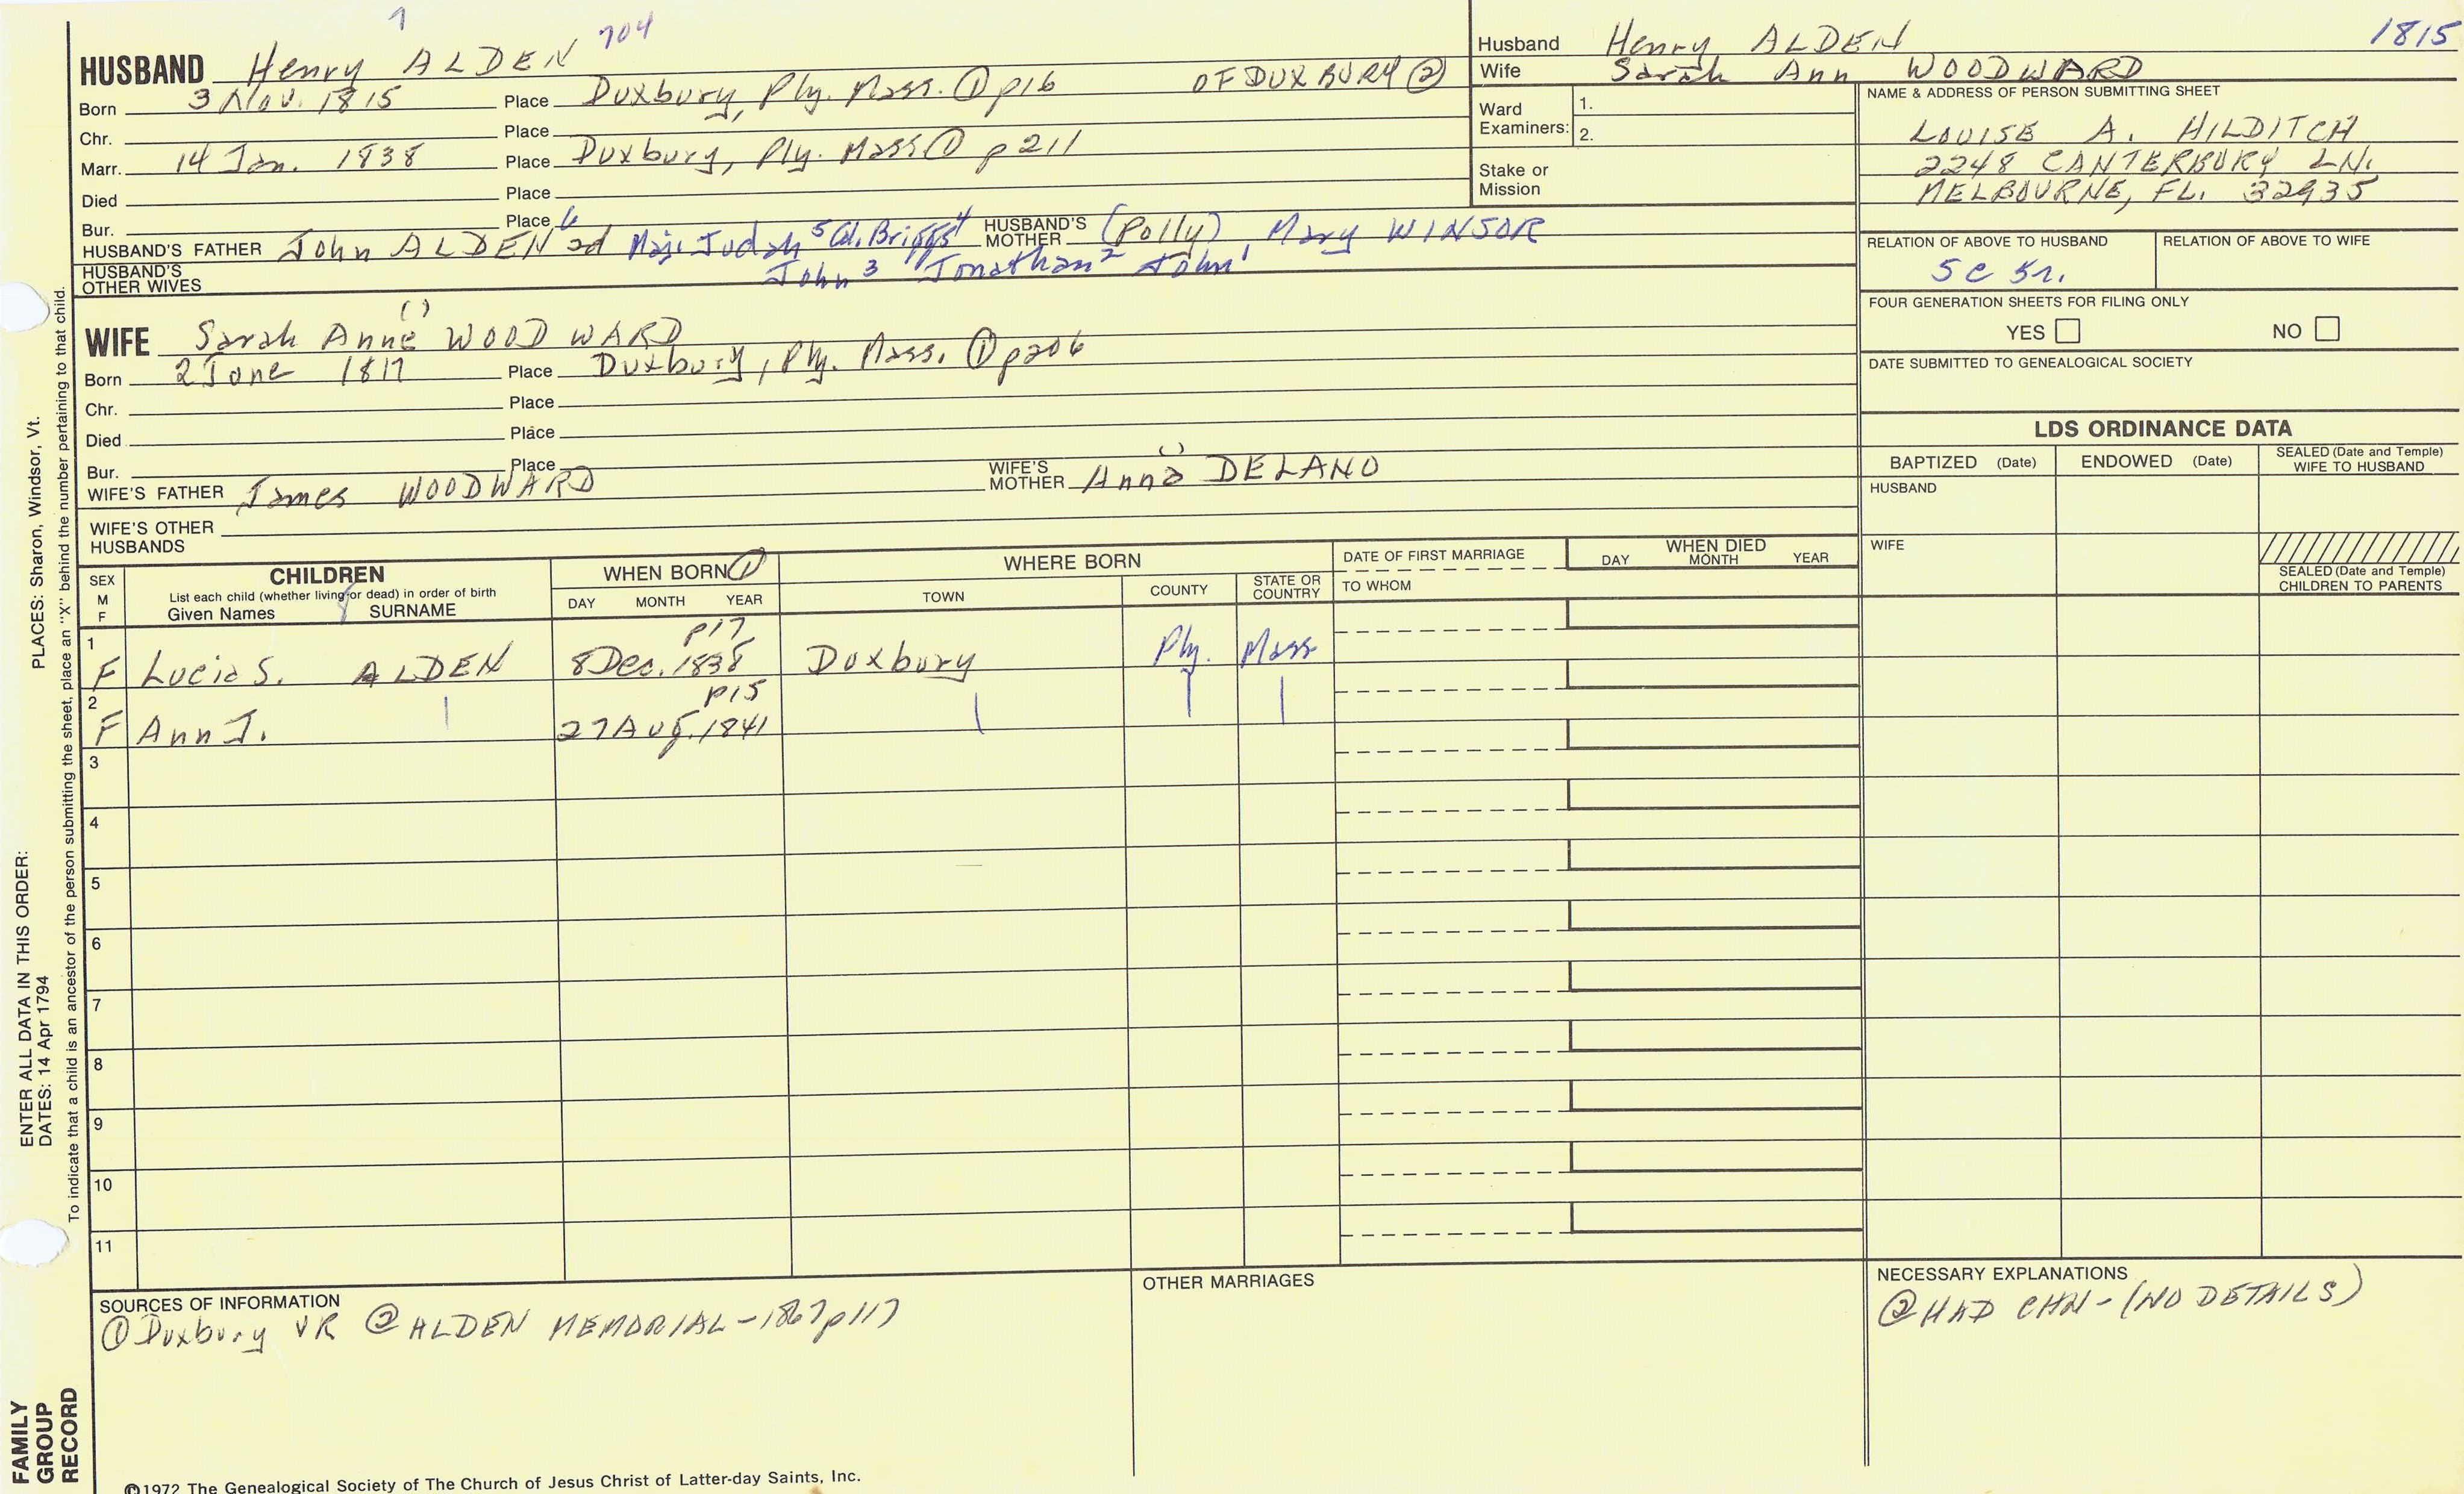 7
HUSBAND Henry ALDEN 704
Born 3 Nov. 1815 Place Duxbury, Ply. Mass. ① p16 OF DUXBURY ②
Chr. Place
Marr. 14 Jan. 1838 Place Duxbury, Ply. Mass ① p211
Died Place
Bur. Place
HUSBAND'S FATHER John ALDEN 2d 6 Maj. Judah 5 Col. Briggs 4 HUSBAND'S MOTHER (Polly), Mary WINSOR
John 3 Jonathan 2 John 1
HUSBAND'S OTHER WIVES
Husband Henry ALDEN 1815
Wife Sarah Ann WOODWARD
Ward Examiners: 1.
2.
Stake or Mission
NAME & ADDRESS OF PERSON SUBMITTING SHEET
LOUISE A. HILDITCH
2248 CANTERBURY LN.
MELBOURNE, FL. 32935
RELATION OF ABOVE TO HUSBAND RELATION OF ABOVE TO WIFE
5c 5r.
FOUR GENERATION SHEETS FOR FILING ONLY
YES NO
DATE SUBMITTED TO GENEALOGICAL SOCIETY
( )
WIFE Sarah Anne WOODWARD
Born 2 June 1817 Place Duxbury, Ply. Mass. ① p206
Chr. Place
Died Place
Bur. Place
( )
WIFE'S FATHER James WOODWARD WIFE'S MOTHER Anna DELANO
WIFE'S OTHER HUSBANDS
LDS ORDINANCE DATA
BAPTIZED (Date) ENDOWED (Date) SEALED (Date and Temple) WIFE TO HUSBAND
HUSBAND
WIFE
SEALED (Date and Temple) CHILDREN TO PARENTS
SEX M F
CHILDREN
List each child (whether living or dead) in order of birth
Given Names SURNAME
WHEN BORN ①
DAY MONTH YEAR
WHERE BORN
TOWN COUNTY STATE OR COUNTRY
DATE OF FIRST MARRIAGE
TO WHOM
WHEN DIED
DAY MONTH YEAR
p17
1 F Lucia S. ALDEN 8 Dec. 1838 Duxbury Ply. Mass
p15
2 F Ann J. 27 Aug. 1841
3
4
5
6
7
8
9
10
11
SOURCES OF INFORMATION
① Duxbury VR ② ALDEN MEMORIAL - 1867 p117
OTHER MARRIAGES
NECESSARY EXPLANATIONS
② HAD CHN - (NO DETAILS)
ENTER ALL DATA IN THIS ORDER:
DATES: 14 Apr 1794 PLACES: Sharon, Windsor, Vt.
To indicate that a child is an ancestor of the person submitting the sheet, place an "X" behind the number pertaining to that child.
FAMILY
GROUP
RECORD
©1972 The Genealogical Society of The Church of Jesus Christ of Latter-day Saints, Inc.